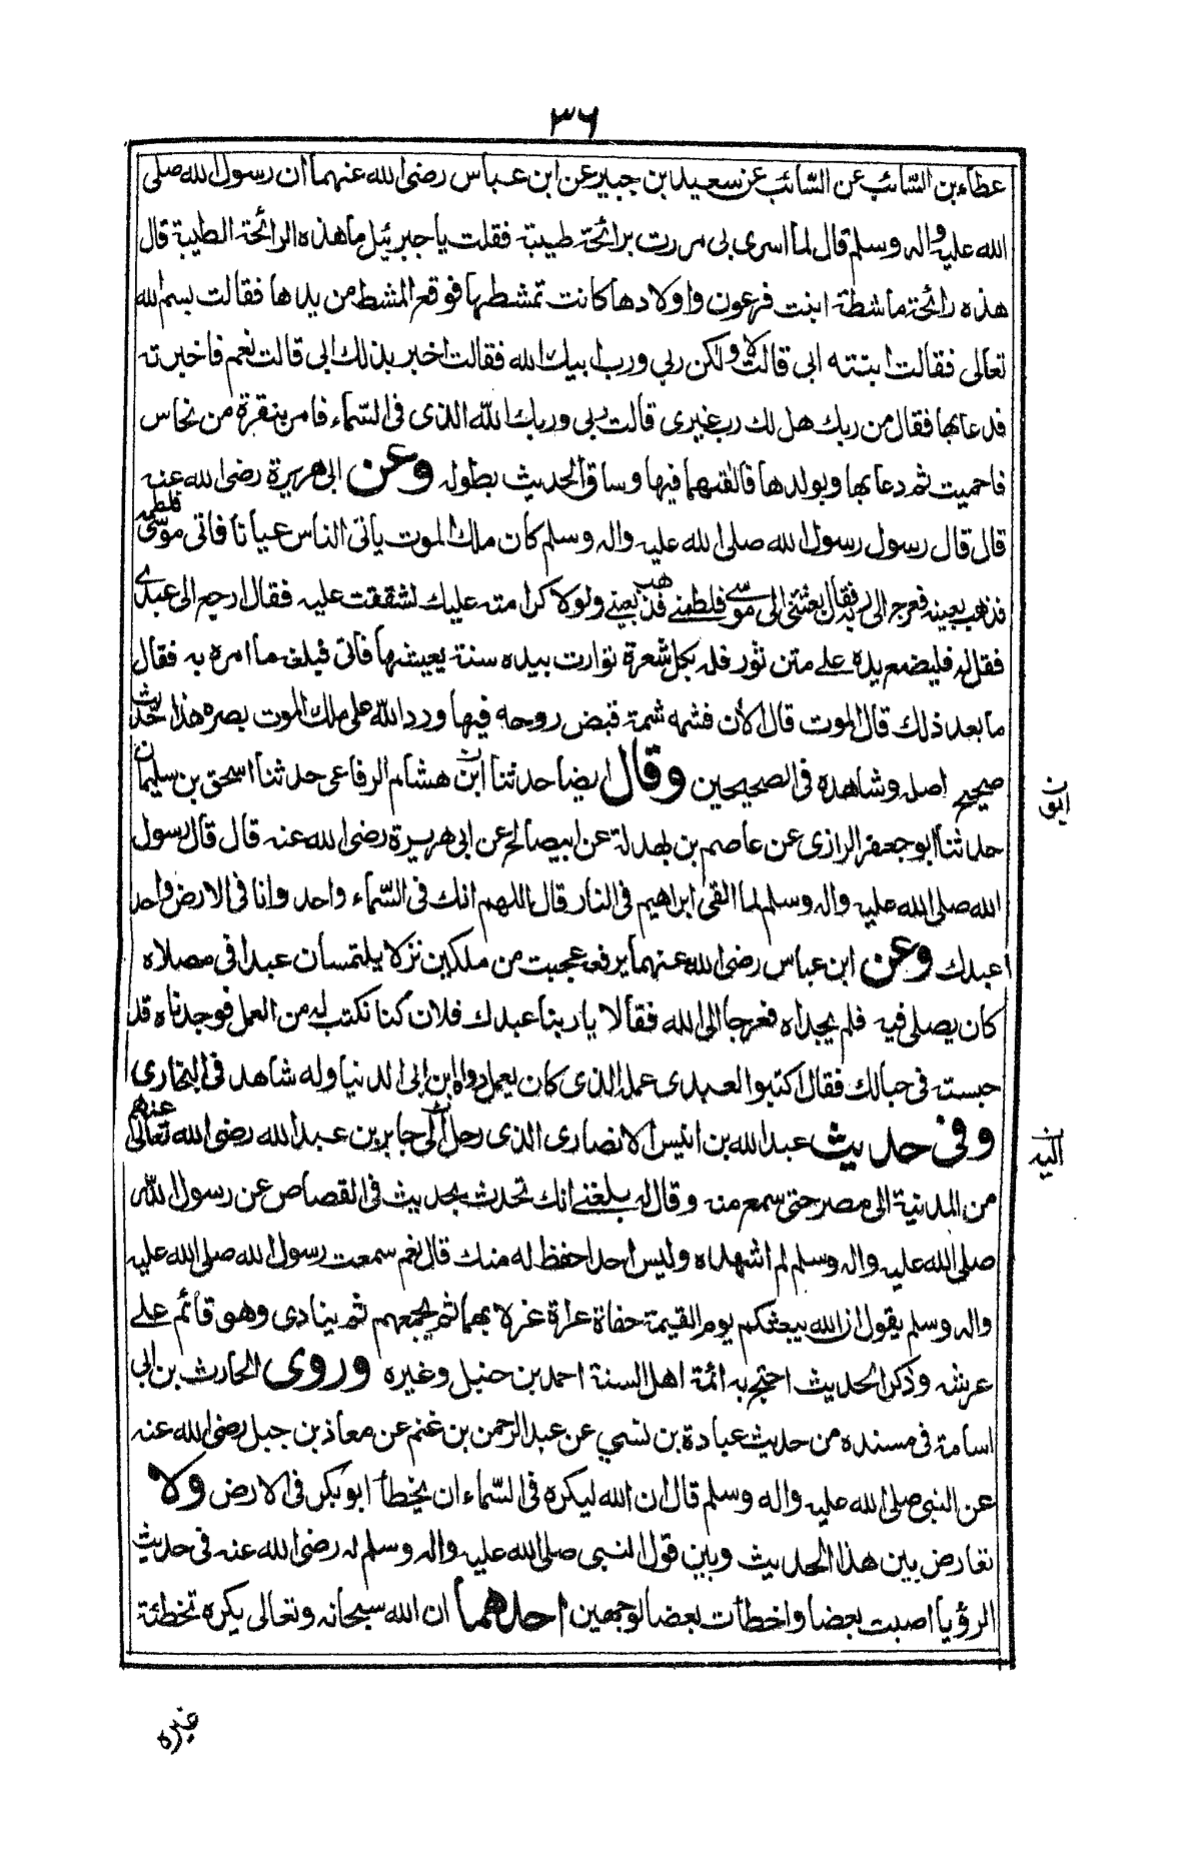 ٣٦
عطاء بن السّائب عن السّائب عن سعيد بن جبير عن ابن عباس رضى الله عنهما ان رسول الله صلى
الله عليه واله وسلم قال لما اسرى بى مررت برائحة طيبة فقلت يا جبرئيل ما هذه الرائحة الطيبة قال
هذه رائحة ماشطة ابنت فرعون واولادها كانت تمشطها فوقع المشط من يدها فقالت بسم الله
تعالى فقالت ابنته ابى قالت لا ولكن ربي ورب ابيك الله فقالت اخبر بذلك ابى قالت نعم فاخبرته
فدعا بها فقال من ربك هل لك رب غيرى قالت ربى وربك الله الذى فى السّماء فامر بنقرة من نحاس
فاحميت ثم دعا بها وبولدها فالقتهما فيها وساق الحديث بطوله وعن ابى هريرة رضى الله عنه
قال قال رسول رسول الله صلى الله عليه واله وسلم كان ملك الموت ياتى الناس عيانا فاتى موسى فلطمه
فذهب بعينه فعرج الى ربه فقال بعثتنى الى موسى فلطمنے فذهب بعينے ولولا كرامته عليك لشققت عليه فقال ارجع الى عبدے
فقل له فليضع يده علے متن ثور فله بكل شعرة توارت بيده سنة يعيشها فاتى فبلغه ما امره به فقال
ما بعد ذلك قال الموت قال الأن فشمه شمة قبض روحه فيها ورد الله على ملك الموت بصره هذا حديث
صحيح اصله وشاهده فى الصحيحين وقال ايضا حدثنا ابن هشام الرفاعى حدثنا اسحق بن سليمان
حدثنا ابو جعفر الرازى عن عاصم بن بهدلة عن ابيصالح عن ابى هريرة رضى الله عنه قال قال رسول
الله صلى الله عليه واله وسلم لما القى ابراهيم فى النار قال اللهم انك فى السّماء واحد وانا فى الارض واحد
اعبدك وعن ابن عباس رضى الله عنهما يرفعه عجبت من ملكين نزلا يلتمسان عبدا فى مصلاه
كان يصلى فيه فلم يجداه فعرجا الى الله فقالا يا ربنا عبدك فلان كنا نكتب له من العمل فوجدناه قد
حبسته فى حبالك فقال اكتبوا لعبدى عمله الذى كان يعمل رواه ابن ابى الدنيا وله شاهد فى البخارى
وفى حديث عبد الله بن انيس الانصارى الذى رحل الى جابر بن عبد الله رضى الله تعالى عنهم
من المدنية الى مصر حتى سمع منه وقال له بلغنے انك تحدث بحديث فى القصاص عن رسول الله
صلى الله عليه واله وسلم لم اشهده وليس احد احفظ له منك قال نعم سمعت رسول الله صلى الله عليه
واله وسلم يقول ان الله يبعثكم يوم القيمة حفاة عراة غرلا بهما ثم يجمعهم ثم ينادى وهو قائم علے
عرشه وذكر الحديث احتج به ائمة اهل السنة احمد بن حنبل وغيره وروى الحارث بن ابى
اسامة فى مسنده من حديث عبادة بن نسي عن عبد الرحمن بن غنم عن معاذ بن جبل رضى الله عنه
عن النبى صلى الله عليه واله وسلم قال ان الله ليكره فى السّماء ان يخطأ ابو بكر فى الارض ولا
تعارض بين هذا الحديث وبين قول النبى صلى الله عليه واله وسلم له رضى الله عنه فى حديث
الرؤيا اصبت بعضا واخطأت بعضا لوجهين احدهما ان الله سبحانه وتعالى يكره تخطئة
ابون
اليه ن
غيره